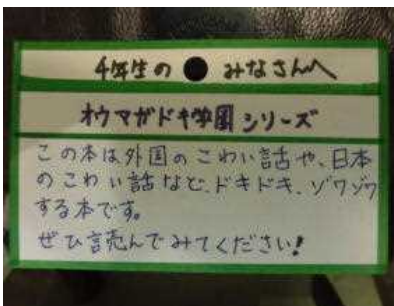 4年生の ● みなさんへ
オウマガドキ学園シリーズ
この本は外国のこわい話や、日本
のこわい話など、ドキドキ、ゾワゾワ
する本です。
ぜひ読んでみてください!